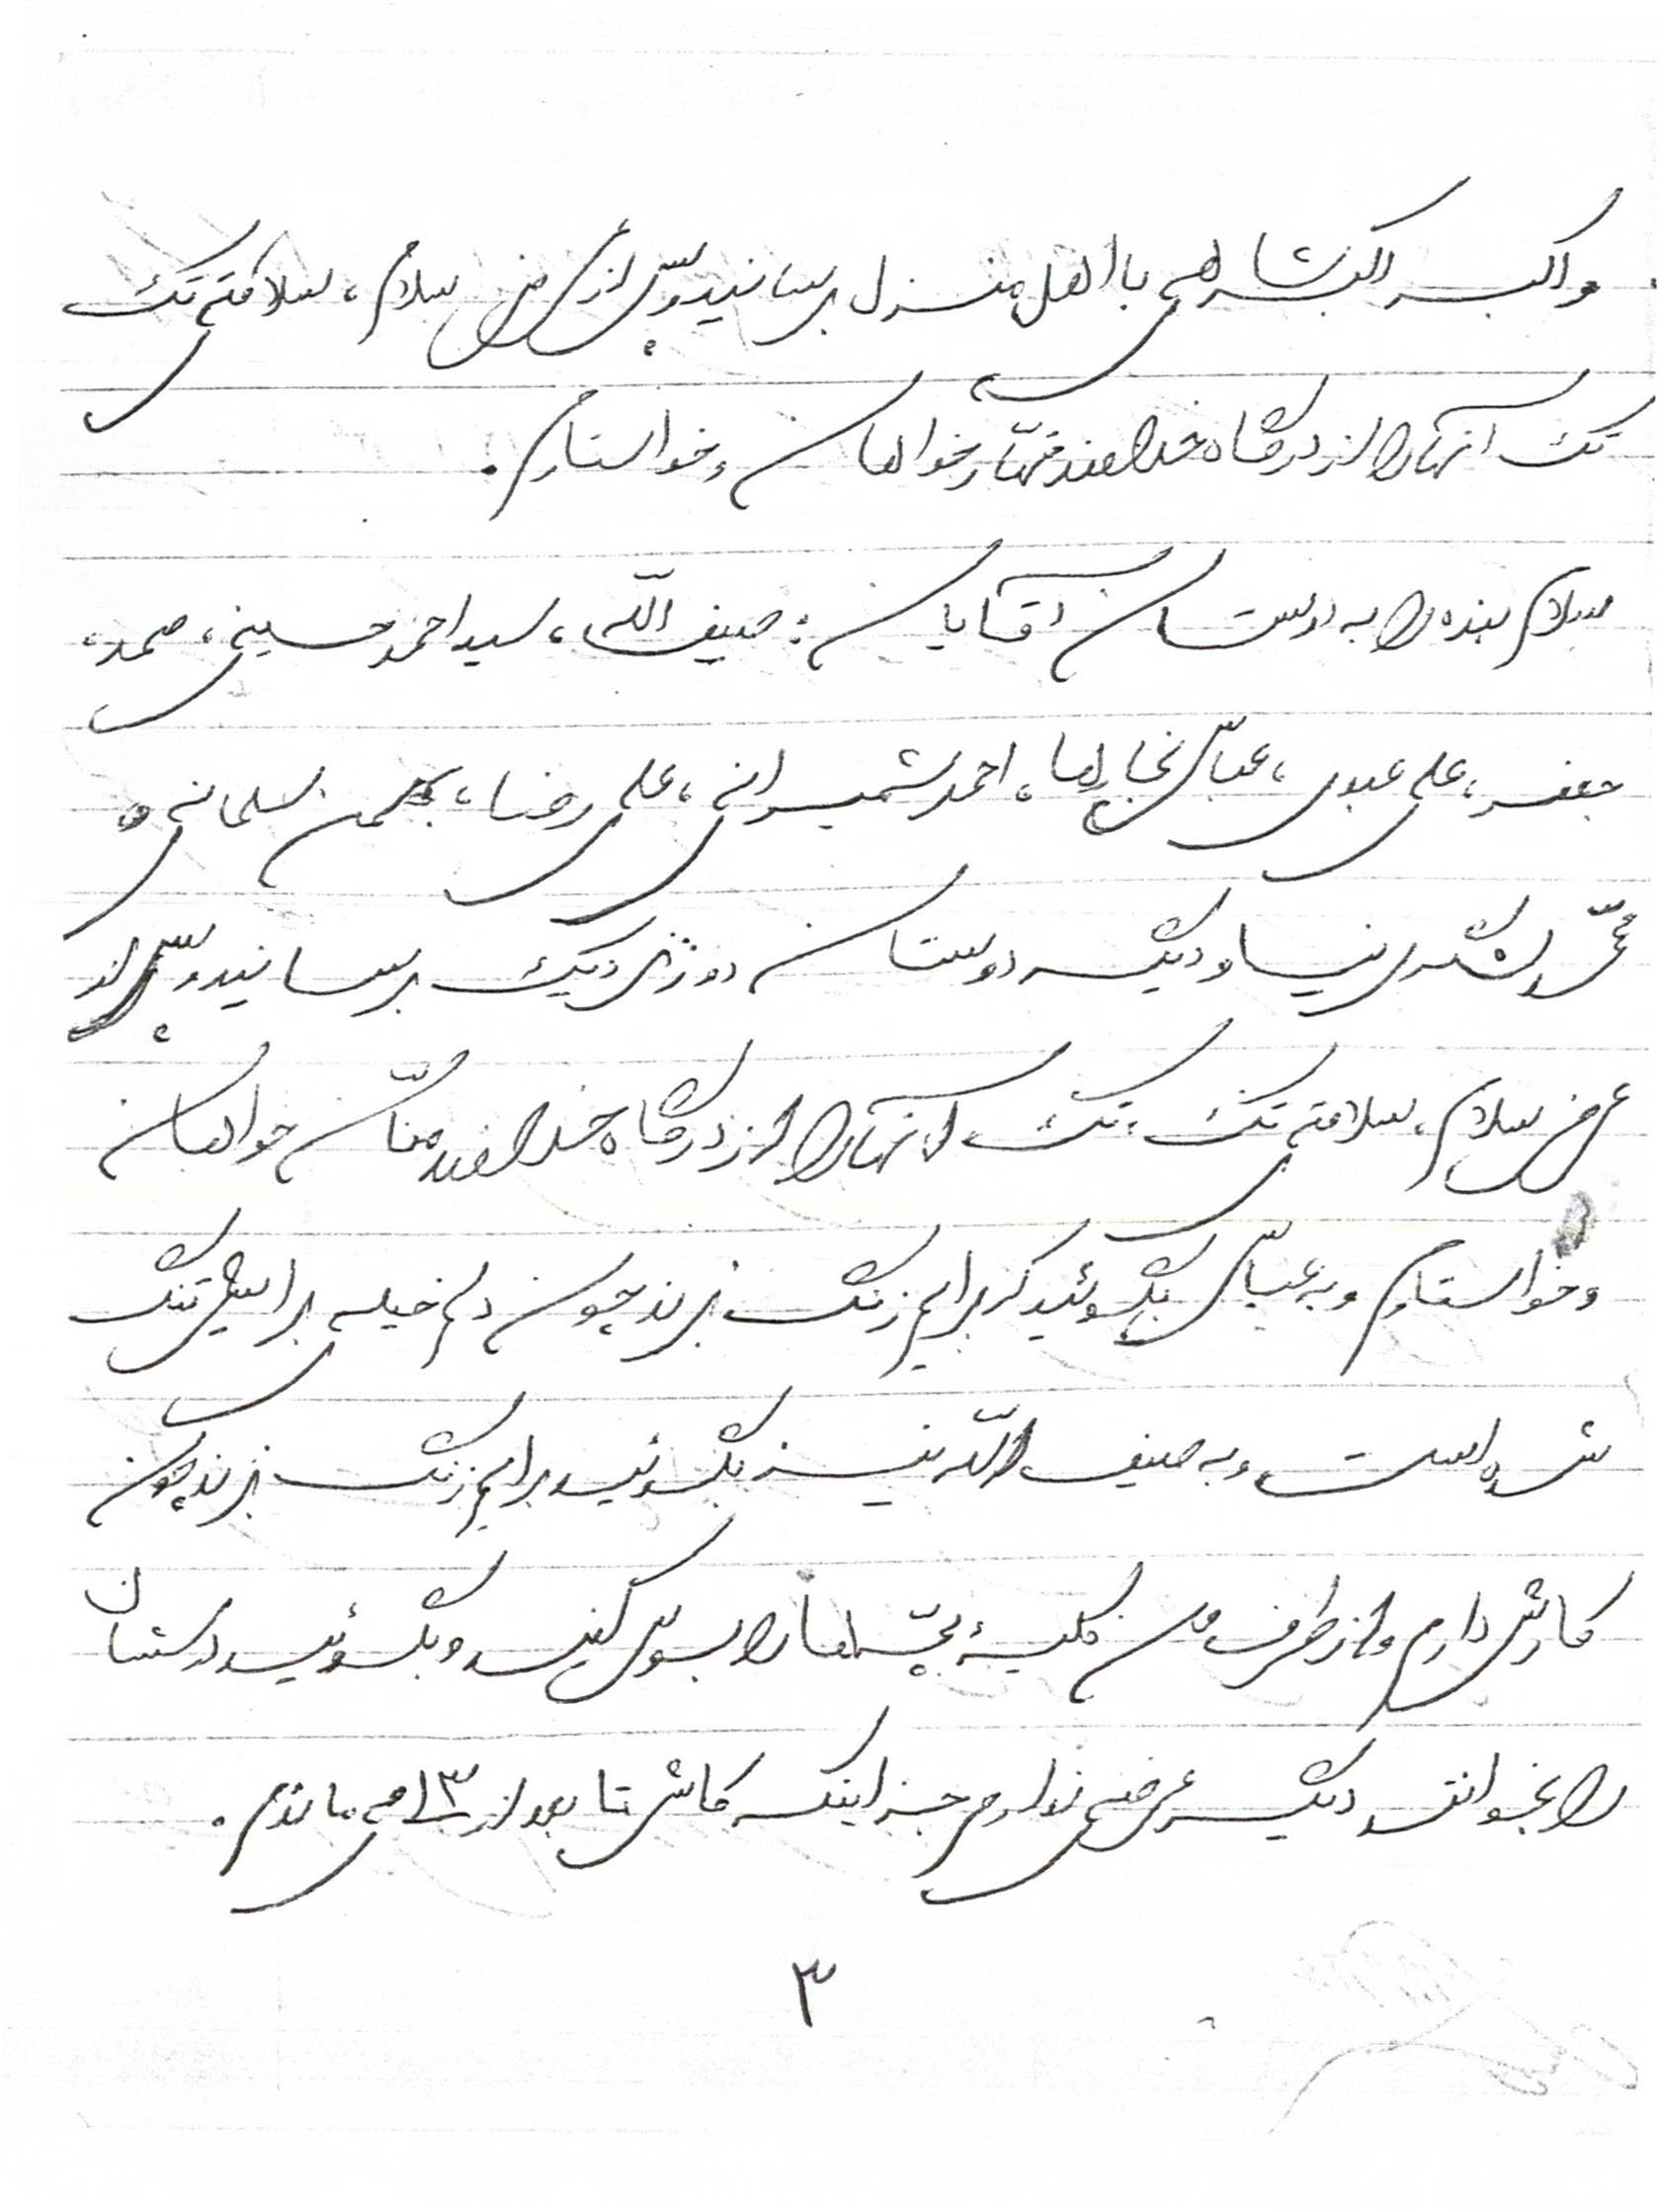 و اکبر اکبرشاهی با اهل منزل برسانید و پس از عرض سلام، سلامتی تک
تک آنها را از درگاه خداوند قهّار خواهان و خواستارم.
سلام بنده را به دوستان آقایان: صیف اللّه، سید احمد حسینی، صمد،
جعفر، علی عبدی، عبّاس نجارها، احمد شمیرانی، علی رضا، بهمن سلمانی و
محمّد لشگری نیا و دیگر دوستان دور و نزدیک برسانید و پس از
عرض سلام، سلامتی تک، تک آنها را از درگاه خداوند منّان خواهان
و خواستارم و به عبّاس بگوئید که برایم زنگ بزند چون دلم خیلی برایش تنگ
شده است و به صیف اللّه نیز بگوئید برایم زنگ بزند چون
کارش دارم و از طرف من کلیهٔ بچّه‌ها را بوس کنید و بگوئید درستان
را بخوانند دیگر عرضی ندارم جز اینکه کاش تا بعد از ۱۳ می ماندم.
۳